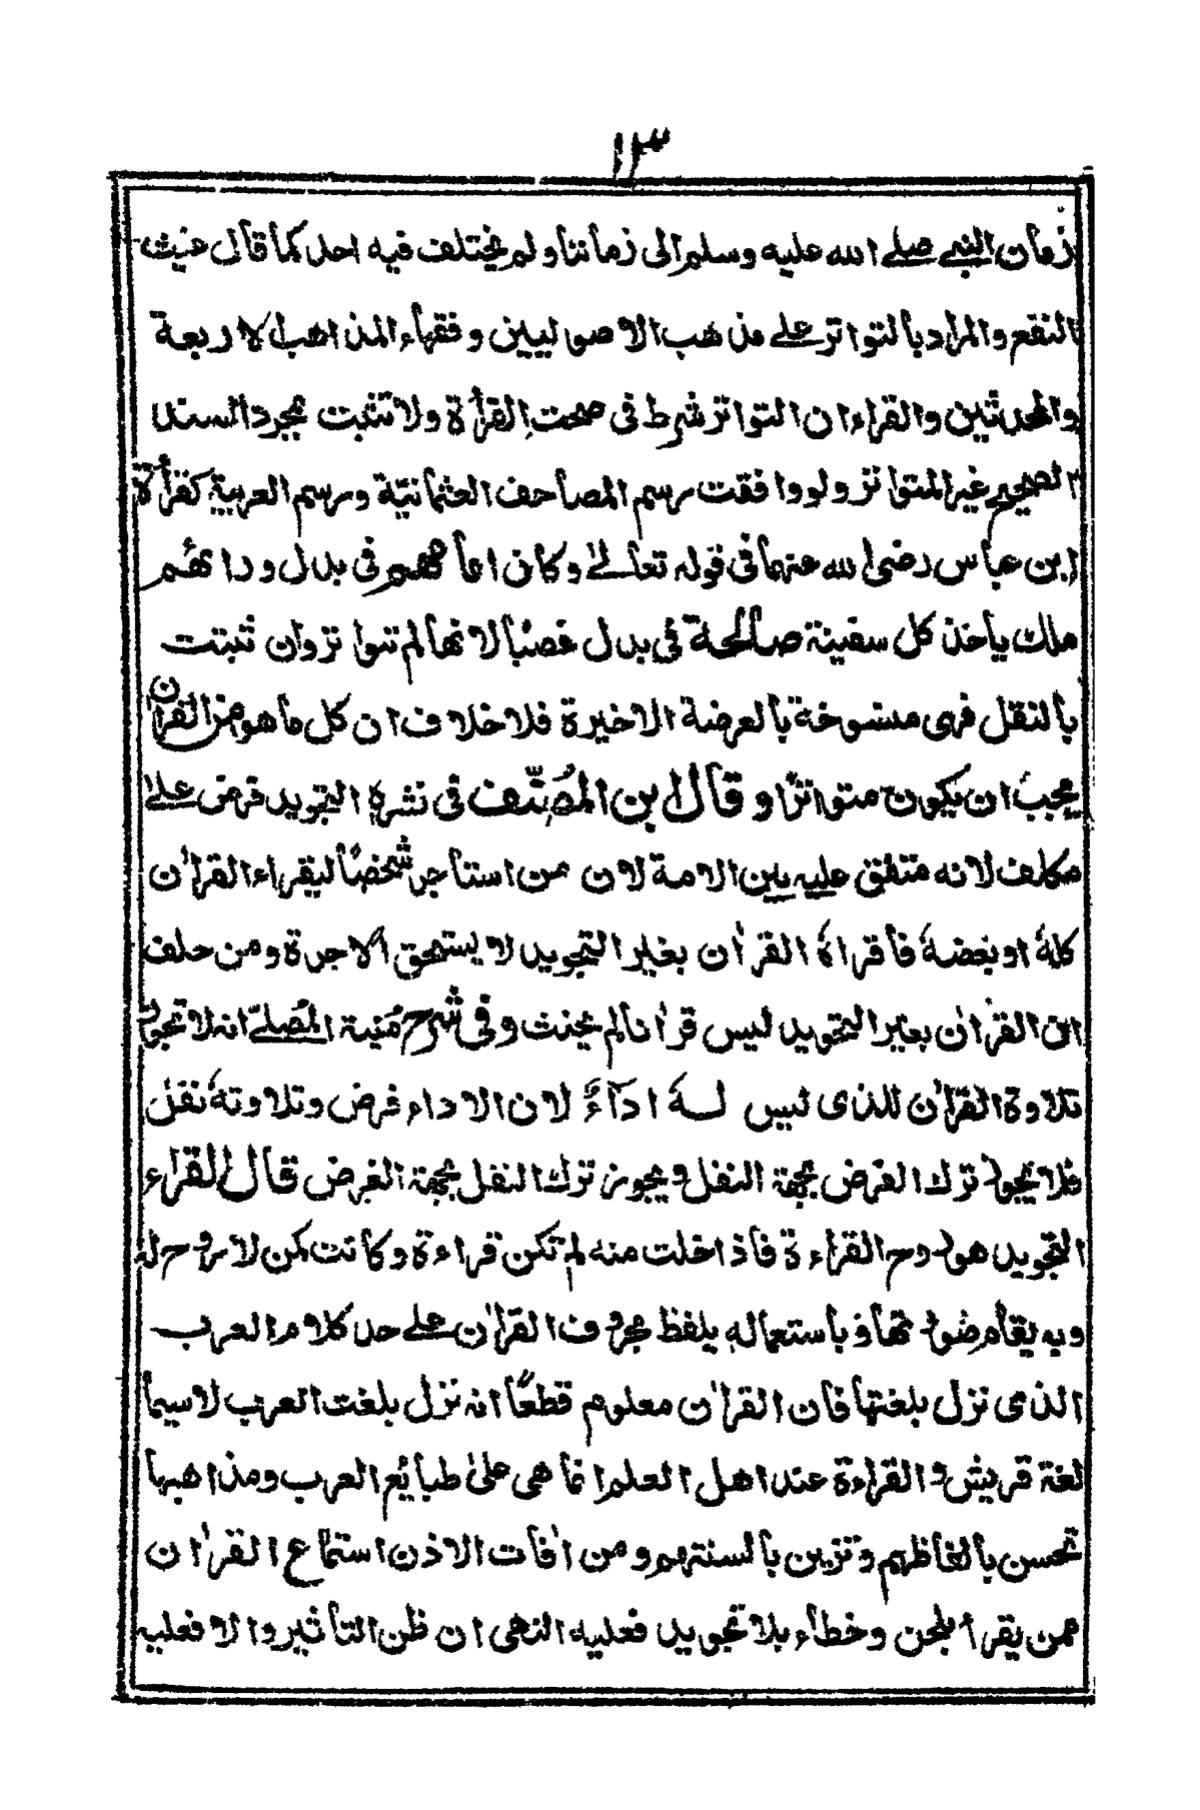 ١٣
زمان النبي صلے الله عليه وسلم الى زماننا ولم يختلف فيه احد كما قال غيث
النفع والمراد بالتواتر علے مذهب الاصوليين وفقهاء المذاهب الاربعة
والمحدثين والقراء ان التواتر شرط فى صحت القرأة ولا تثبت بمجرد السند
الصحيح غير المتواتر ولو وافقت رسم المصاحف العثمانيّة ورسم العربية كقرأة
ابن عباس رضى الله عنهما فى قوله تعالےٰ وكان اماًمهم فى بدل وراءهم
ملك ياخذ كل سفينة صالحة فى بدل غصبًا لانها لم تتواتر وان ثبتت
بالنقل فهى منسوخة بالعرضة الاخيرة فلا خلاف ان كل ما هو من القرأن
يجب ان يكون متواترًا وقال ابن المُصنّف فى نشره التجويد فرض علےٰ
مكلف لانه متفق عليه بين الامة لان من استاجر شخصًا ليقراء القراٰن
كلهٗ او بعضهٗ فاقراهٗ القراٰن بغير التجويد لا يستحق الاجرة ومن حلف
ان القراٰن بغير التجويد ليس قراٰنا لم يحنث وفى شرح مُنية المُصلےّ انه لا تجوز
تلاوة القراٰن للذى ليس لهٗ ادآءٌ لان الاداء فرض وتلاوتهٗ نفل
فلا يجوز ترك الفرض بجهة النفل ويجوز ترك النفل بجهة الفرض قال القراء
التجويد هو روح القراءة فاذا خلت منه لم تكن قراءة وكانت كمن لا روح له
وبه يقام ضوا بها وباستعماله يلفظ بحروف القراٰن علے حد كلام العرب
الذى نزل بلغتها فان القراٰن معلوم قطعًا انه نزل بلغت العرب لاسيما
لغة قريش والقراءة عند اهل العلم انما هى علىٰ طبايع العرب ومذاهبها
تحسن بالفاظهم وتزين بالسنتهم ومن اٰفات الاذن استماع القراٰن
ممن يقرأ بلحن وخطاء بلا تجويد فعليه النهى ان ظن التاثير والا فعليه